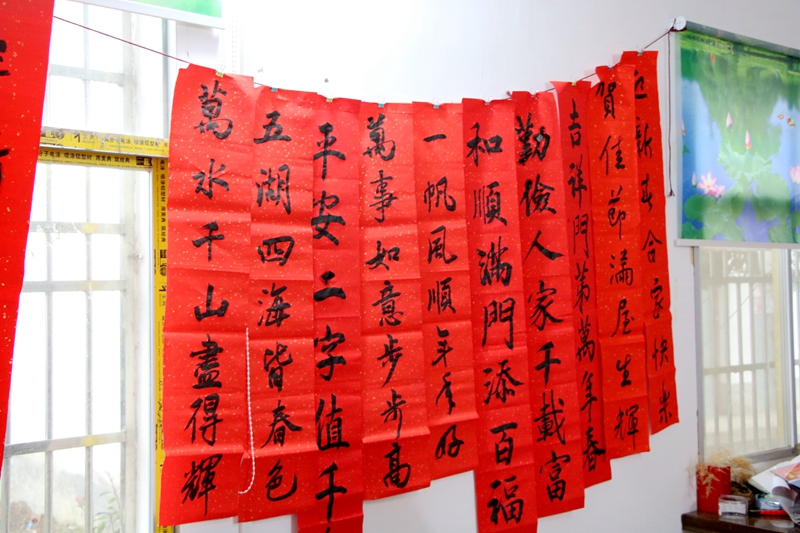 迎新春合家快樂
賀佳節滿屋生輝
吉祥門第萬年春
勤儉人家千載富
和順滿門添百福
一帆風順年年好
萬事如意步步高
平安二字值千
五湖四海皆春色
萬水千山盡得輝